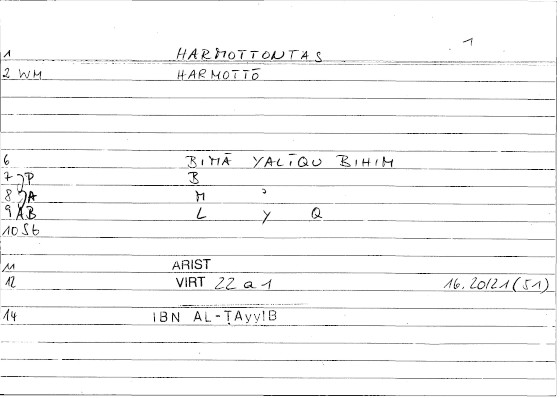 1
1 HARMOTTONTAS
2 WM HARMOTTŌ
6 BIMĀ YALĪQU BIHIM
7 JP B
8 JA M ʾ
9 AB L Y Q
10 Sb
11 ARIST
12 VIRT 22 a 1 16.20/21 (51)
14 IBN AL-ṬAyyIB